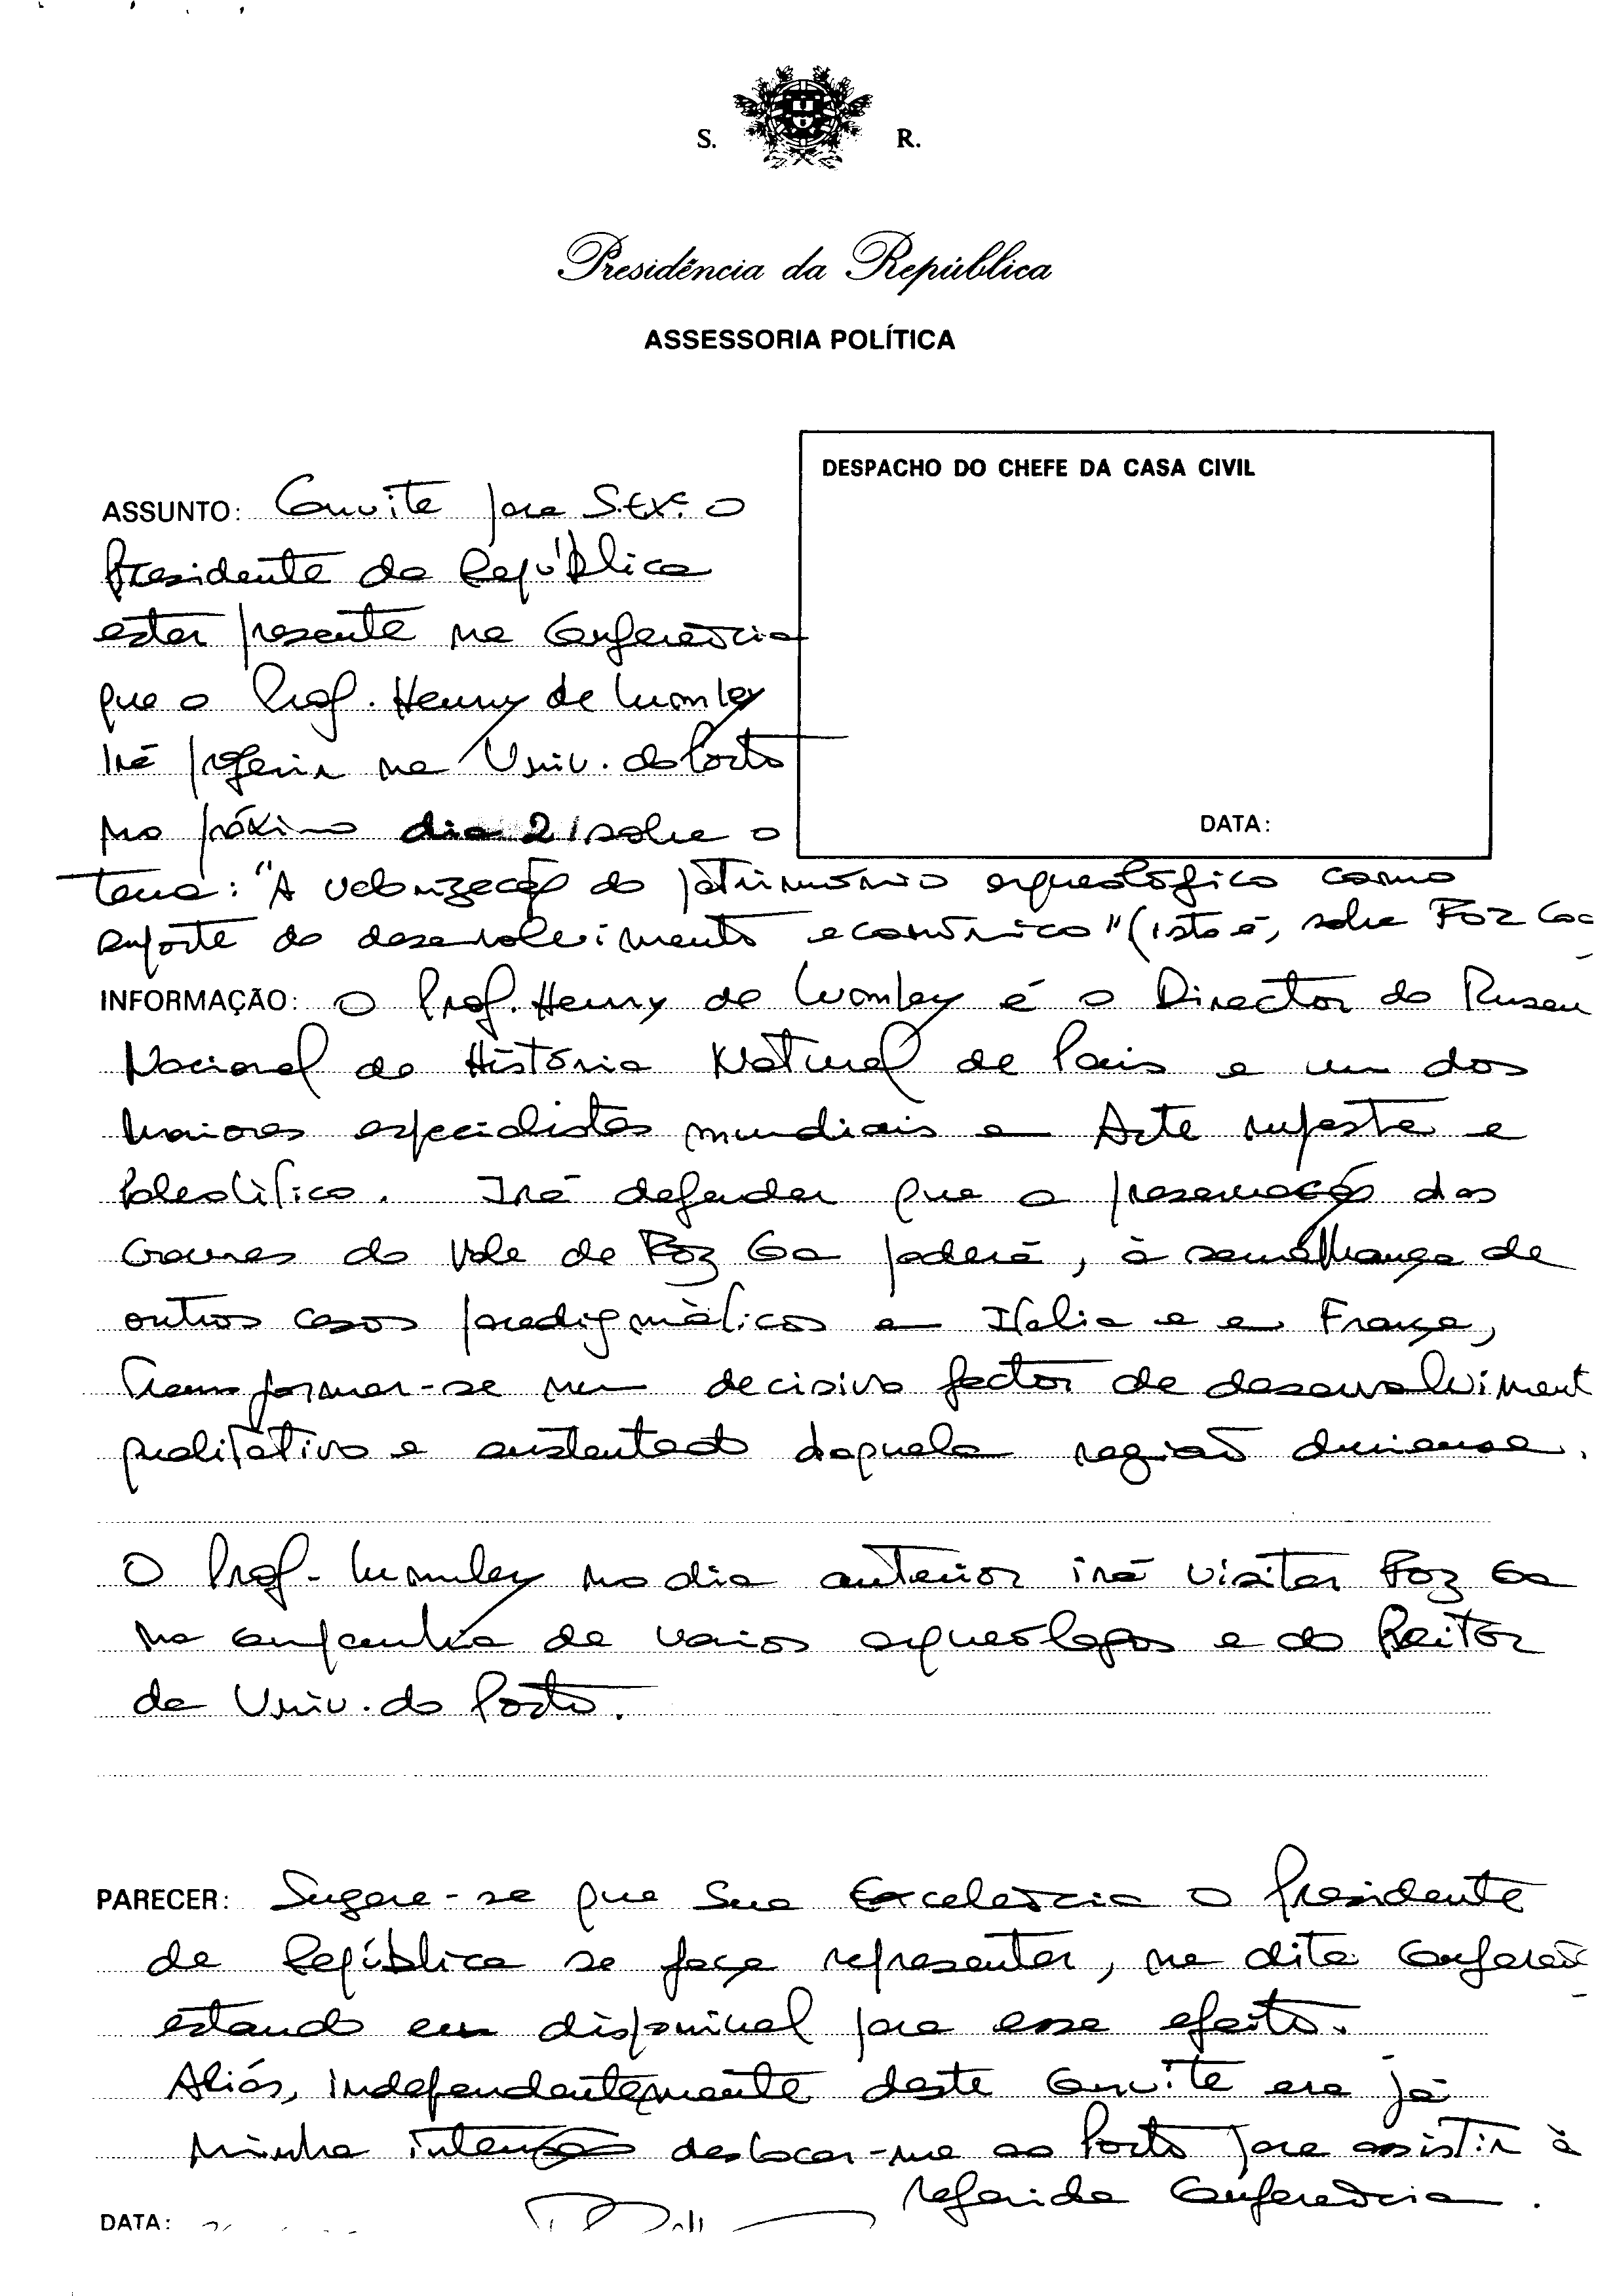 S. R.
Presidência da República
ASSESSORIA POLÍTICA
DESPACHO DO CHEFE DA CASA CIVIL
DATA:
ASSUNTO: Convite para S. Exª. o
Presidente da República
estar presente na Conferência
que o Prof. Henry de Lumley
irá proferir na Univ. do Porto
no próximo dia 21 sobre o
tema: "A valorização do património arqueológico como
suporte do desenvolvimento económico" (isto é, sobre Foz Coa
INFORMAÇÃO: O Prof. Henry de Lumley é o Director do Museu
Nacional de História Natural de Paris e um dos
maiores especialistas mundiais em Arte rupestre e
Paleolítico. Irá defender que a preservação das
Gravuras do Vale de Foz Coa poderá, à semelhança de
outros casos paradigmáticos em Itália e em França,
transformar-se num decisivo factor de desenvolviment
qualitativo e sustentado daquela região duriense.
O Prof. Lumley no dia anterior irá visitar Foz Coa
na companhia de vários arqueólogos e do Reitor
da Univ. do Porto.
PARECER: Sugere-se que Sua Excelência o Presidente
da República se faça representar, na dita Conferên
estando eu disponível para esse efeito.
Aliás, independentemente deste Convite era já
minha intenção deslocar-me ao Porto para assistir à
referida Conferência.
DATA: